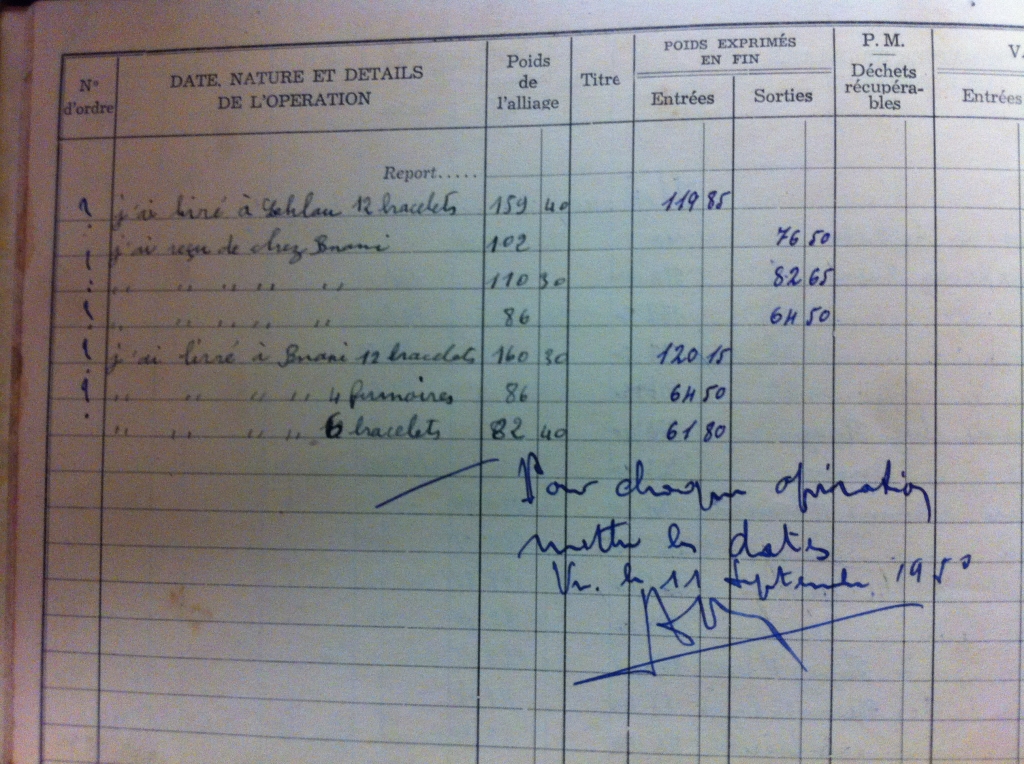 N° d'ordre | DATE, NATURE ET DETAILS DE L'OPERATION | Poids de l'alliage | Titre | POIDS EXPRIMÉS EN FIN Entrées Sorties | P. M. Déchets récupéra-bles | V. Entrées
Report.....
? j'ai livré à 12 bracelets 159 40 119 85
j'ai reçu de chez Bnani 102 76 50
" " " " " 110 30 82 65
? " " " " " 86 64 50
? j'ai livré à Bnani 12 bracelets 160 30 120 15
? " " " " 4 fermoires 86 64 50
" " " " 6 bracelets 82 40 61 80
Pour chaque opération
mettre les dates
Vu. le 11 Septembre 1950